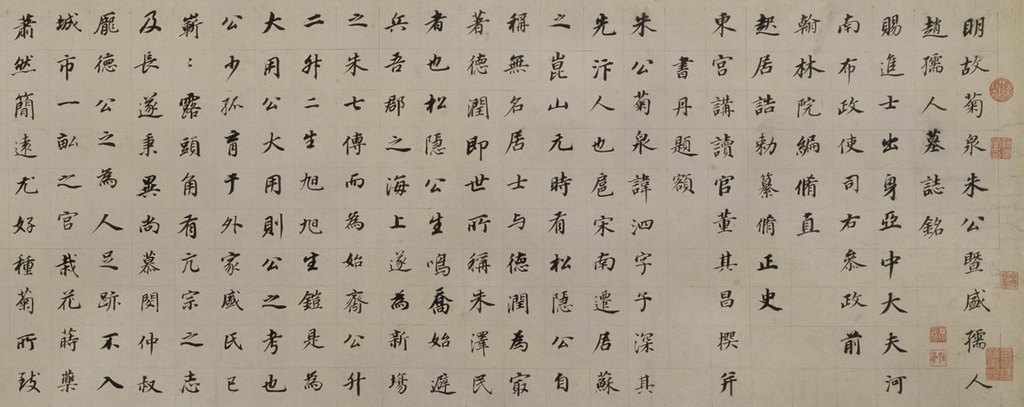 明故菊泉朱公暨盛孺人
趙孺人墓誌銘
賜進士出身亞中大夫河
南布政使司右叅政前
翰林院編脩直
起居誥勅纂脩正史
東宮講讀官董其昌撰并
書丹題額
朱公菊泉諱泗字子深其
先汴人也扈宋南遷居蘇
之崑山元時有松隱公自
稱無名居士与德潤為寂
著德潤即世所稱朱澤民
者也松隱公生鳴喬始避
兵吾郡之海上遂為新塲
之朱七傳而為始齋公升
二升二生旭旭生鎧是為
大用公大用則公之考也
公少孤育于外家盛氏已
嶄〻露頭角有亢宗之志
及長遂秉異尚慕閔仲叔
龐德公之為人足跡不入
城市一畝之宮栽花蒔藥
蕭然簡遠尤好種菊所致